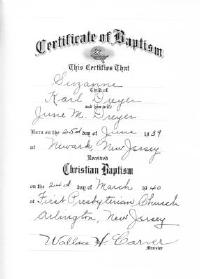 Certificate of Baptism
This Certifies That
Suzanne
Child of
Karl Dreyer
and his wife
June M. Dreyer
Born on the 25th day of June 1939
at Newark, New Jersey
Received
Christian Baptism
on the 2nd day of March 1940
at First Presbyterian Church
Arlington, New Jersey
Wallace H. Carver
Minister